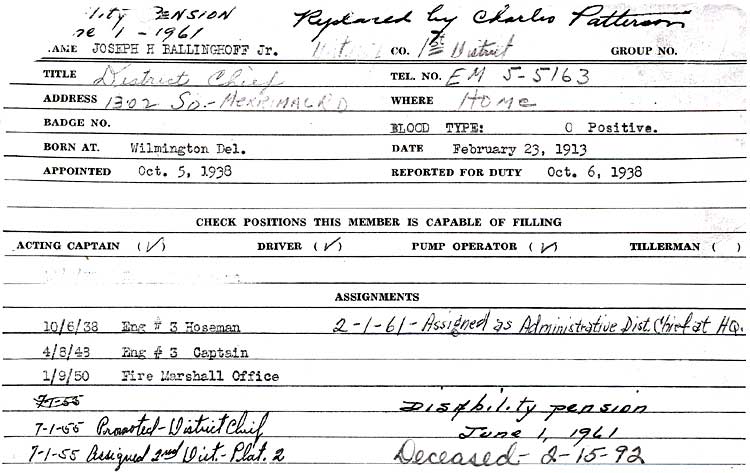 PENSION Replaced by Charles Patterson
1 - 1961
NAME JOSEPH H BALLINGHOFF Jr. CO. 1st District GROUP NO.
TITLE District Chief TEL. NO. EM 5-5163
ADDRESS 1302 So. MERRIMAC RD WHERE HOME
BADGE NO. BLOOD TYPE: O Positive.
BORN AT. Wilmington Del. DATE February 23, 1913
APPOINTED Oct. 5, 1938 REPORTED FOR DUTY Oct. 6, 1938
CHECK POSITIONS THIS MEMBER IS CAPABLE OF FILLING
ACTING CAPTAIN (✓) DRIVER (✓) PUMP OPERATOR (✓) TILLERMAN ( )
ASSIGNMENTS
10/6/38 Eng # 3 Hoseman 2-1-61 - Assigned as Administrative Dist. Chief at HQ.
4/8/43 Eng # 3 Captain
1/9/50 Fire Marshall Office
7-1-55 Disability pension
7-1-55 Promoted - District Chief June 1, 1961
7-1-55 Assigned 2nd Dist. - Plat. 2 Deceased - 2-15-92